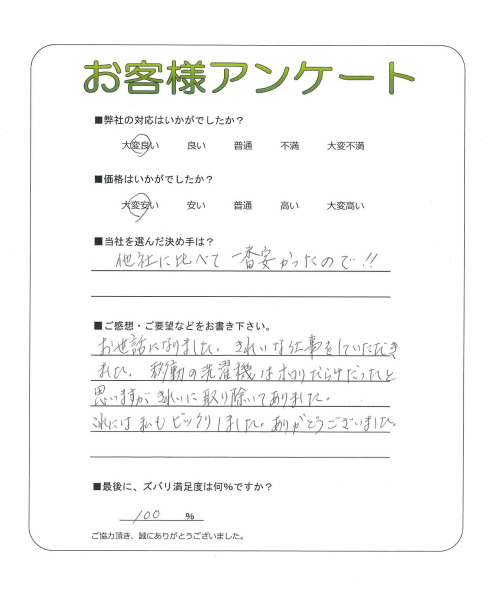 お客様アンケート
■弊社の対応はいかがでしたか？
大変良い 良い 普通 不満 大変不満
■価格はいかがでしたか？
大変安い 安い 普通 高い 大変高い
■当社を選んだ決め手は？
他社に比べて 一番安かったので!!
■ご感想・ご要望などをお書き下さい。
お世話になりました。きれいな仕事をしていただき
ました。移動の洗濯機はホコリだらけだったと
思いますが きれいに取り除いてありました。
これには私もビックリしました。ありがとうございました。
■最後に、ズバリ満足度は何％ですか？
100 ％
ご協力頂き、誠にありがとうございました。